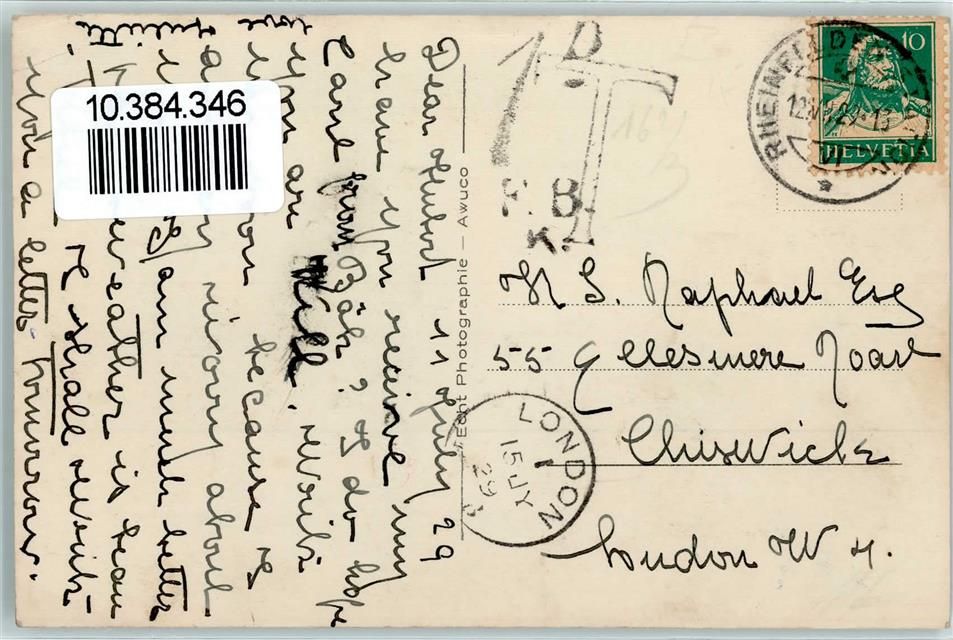 10.384.346
Dear Hubert 11 July 29
have you receive my
Card from Bâle? I do hope
you are well. Write
soon because I
am very about
I am much better
weather is beau
I shall write
you a letter tomorrow.
love
Juliette
Echt Photographie – Awuco
T
P.B.K.
RHEINFELDEN
12.VII.29.-13
10
HELVETIA
LONDON
15 JY
29
H S. Raphael Esq
55 Ellesmere Road
Chiswick
London W 4.